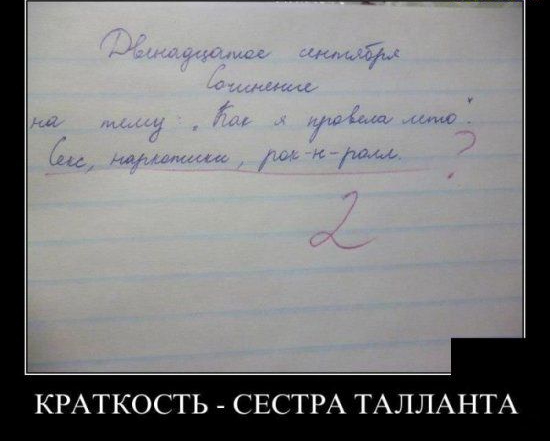 Двенадцатое сентября
Сочинение
на тему: „Как я провела лето".
Секс, наркотики, рок-н-ролл. ?
2
КРАТКОСТЬ - СЕСТРА ТАЛЛАНТА